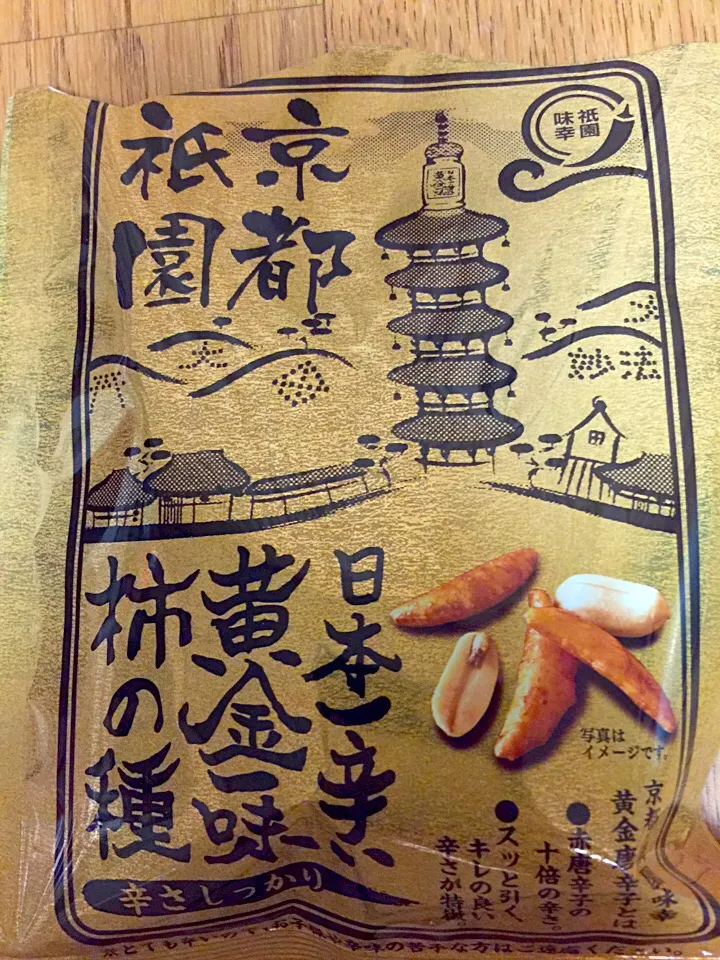 京都
祇園
祇園
味幸
大
妙法
日本一辛い
黄金一味
柿の種
辛さしっかり
写真は
イメージです。
黄金唐辛子とは
●赤唐辛子の
十倍の辛さ。
●スッと引く
キレの良い
辛さが特徴。